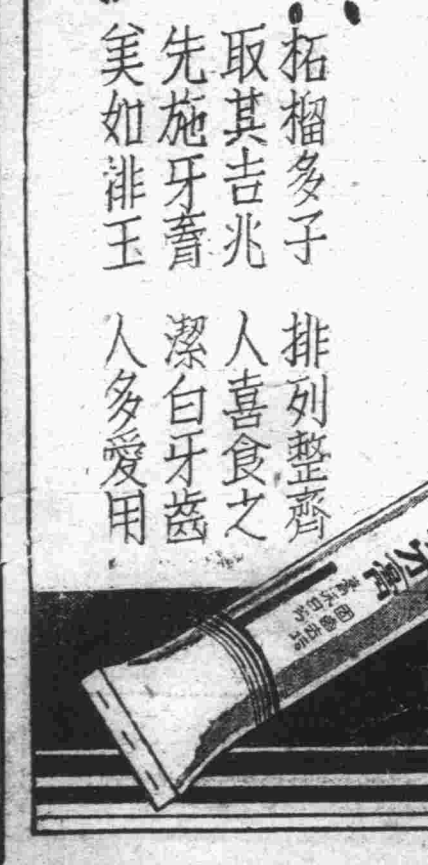 柘榴多子 排列整齊
取其吉兆 人喜食之
先施牙膏 潔白牙齒
美如琲玉 人多愛用
牙膏